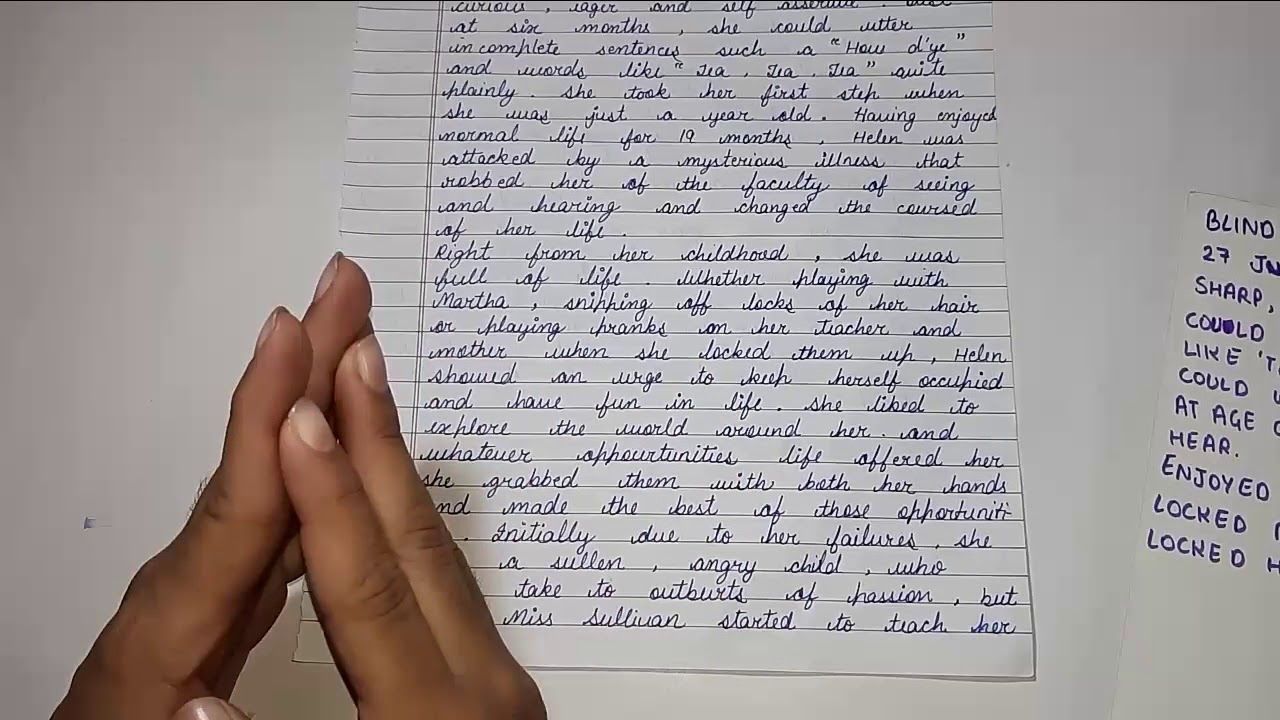 curious, eager and self assertive.
at six months, she could utter
in complete sentences such a "How d'ye"
and words like "Tea, Tea, Tea" quite
plainly. she took her first step when
she was just a year old. Having enjoyed
normal life for 19 months, Helen was
attacked by a mysterious illness that
robbed her of the faculty of seeing
and hearing and changed the coursed
of her life.
Right from her childhood, she was
full of life. Whether playing with
Martha, snipping off locks of her hair
or playing pranks on her teacher and
mother when she locked them up, Helen
showed an urge to keep herself occupied
and have fun in life. she liked to
explore the world around her. and
whatever oppourtunities life offered her
she grabbed them with both her hands
nd made the best of those opportuniti-
. Initially due to her failures, she
a sullen, angry child, who
take to outburts of passion, but
Miss Sullivan started to teach her
BLIND
27 JU
SHARP,
COULD
LIKE 'T
COULD
AT AGE
HEAR.
ENJOYED
LOCKED
LOCKED H